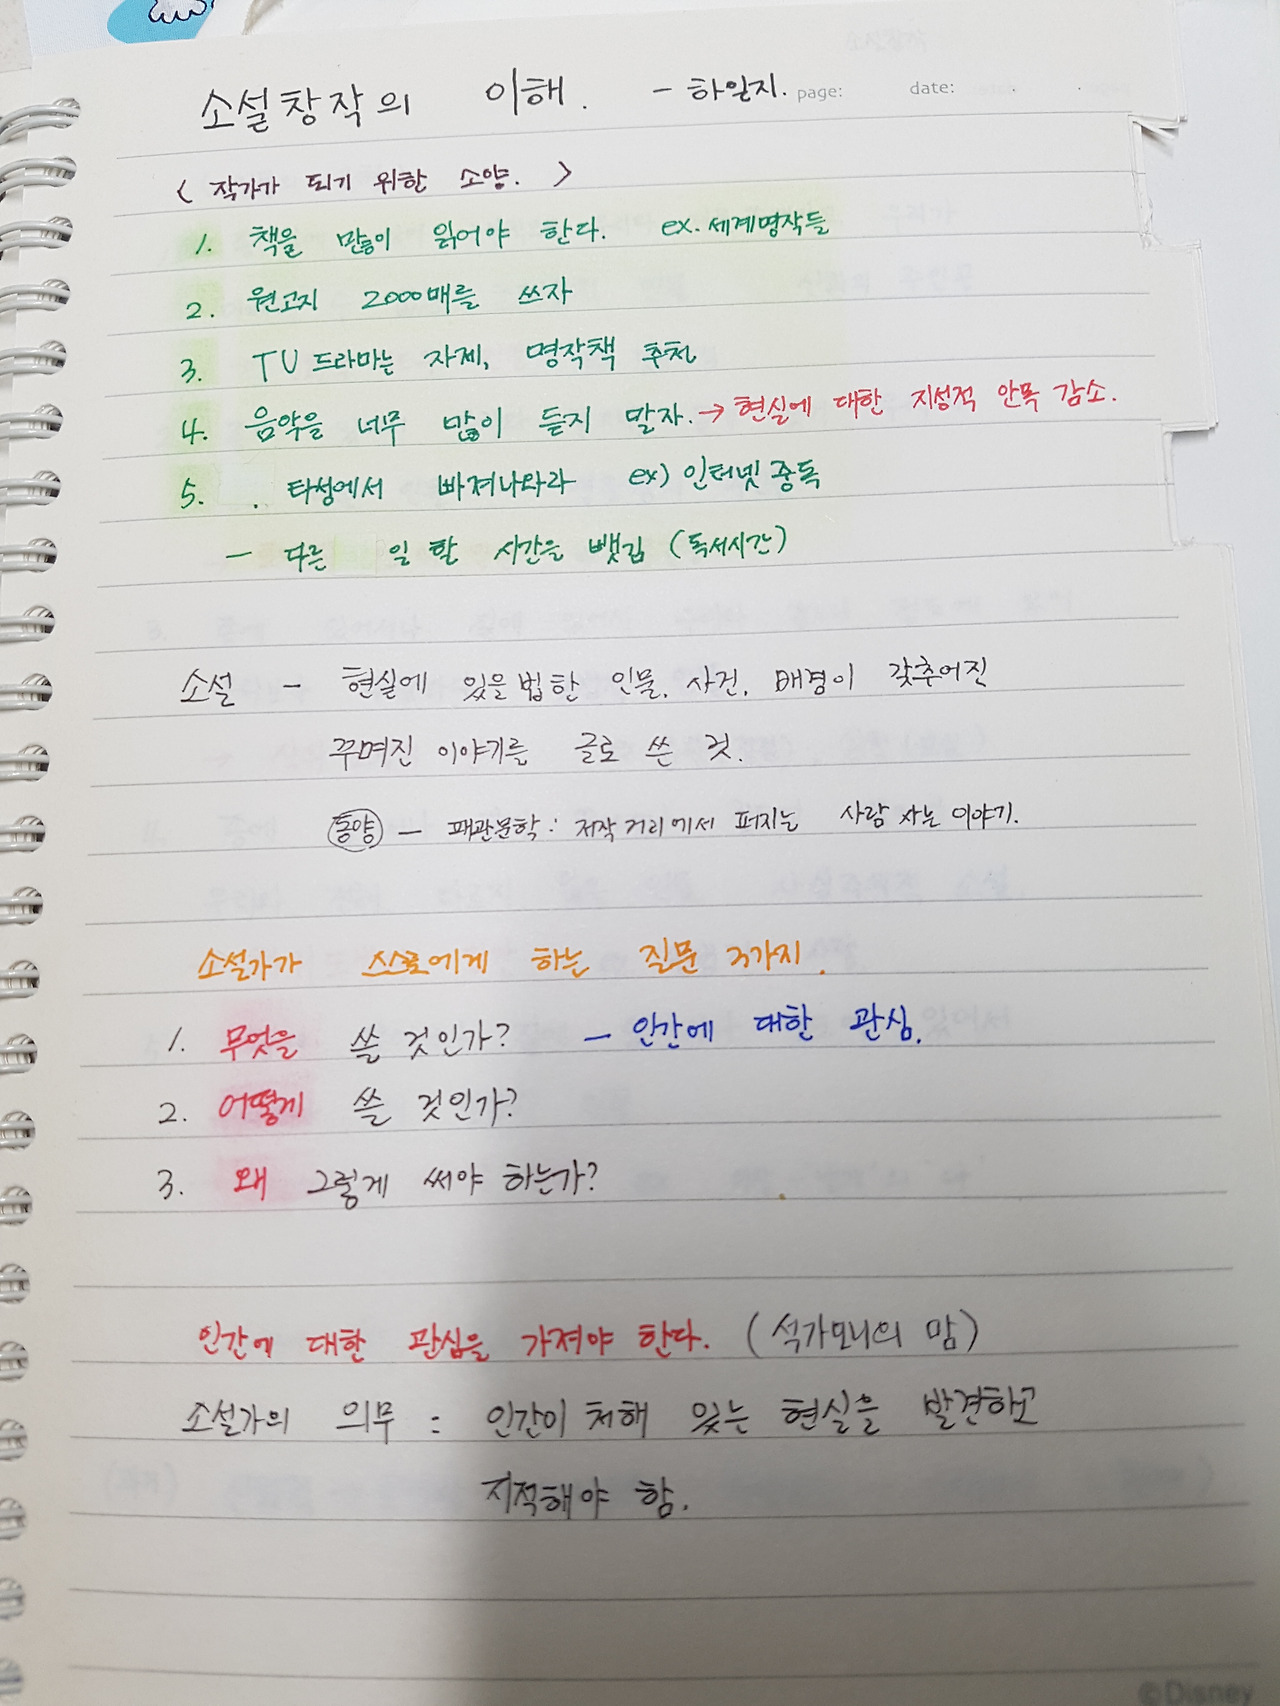 소설창작의 이해. - 하일지. page: date:
< 작가가 되기 위한 소양. >
1. 책을 많이 읽어야 한다. ex. 세계명작들
2. 원고지 2000매를 쓰자
3. TV 드라마는 자제, 명작책 추천
4. 음악을 너무 많이 듣지 말자. → 현실에 대한 지성적 안목 감소.
5. . 타성에서 빠져나와라 ex) 인터넷 중독
- 다른 일 할 시간을 뺏김 (독서시간)
소설 - 현실에 있을 법한 인물, 사건, 배경이 갖추어진
꾸며진 이야기를 글로 쓴 것.
동양 - 패관문학 : 저작거리에서 퍼지는 사람 사는 이야기.
소설가가 스스로에게 하는 질문 3가지.
1. 무엇을 쓸 것인가? - 인간에 대한 관심.
2. 어떻게 쓸 것인가?
3. 왜 그렇게 써야 하는가?
인간에 대한 관심을 가져야 한다. (석가모니의 맘)
소설가의 의무 : 인간이 처해 있는 현실을 발견하고
지적해야 함.
©Disney